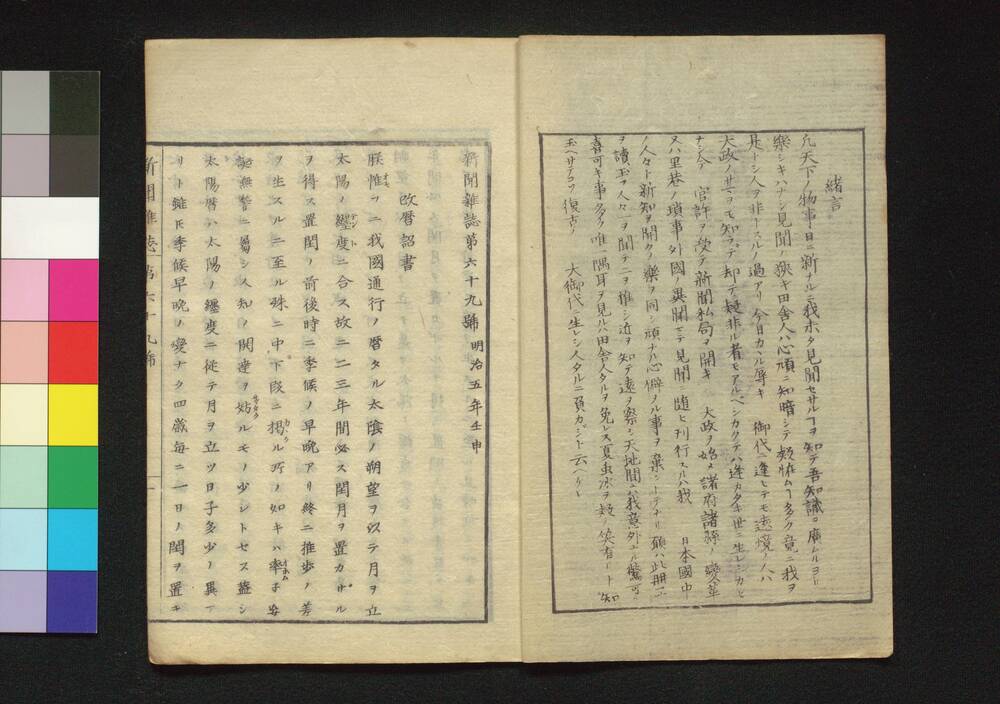 緒言
凡天下ノ物事日ニ新ナルニ我未タ見聞セサルヿヲ知テ吾知識ヲ廣ムルヨリ
樂シキハナシ見聞ノ狹キ田舎人ハ心頑ニ知暗シテ疑恠ムヿ多ク竟ニ我ヲ
是トシ人ヲ非トスルノ過アリ今日カヽル尊キ御代ニ逢ヒテモ遠境ノ人ハ
大政ノサマヲモ知ラデ却テ疑非ル者モアルベシカクテハ逢カタキ世ニ生レシカヒ
ナシ今官許ヲ受テ新聞私局ヲ開キ大政ヲ始メ諸府諸縣ノ變革
又ハ里巷ノ瑣事外國ノ異聞マテ見聞ニ随ヒ刊行スルハ我日本國中
ノ人々ト新知ヲ開クノ樂ヲ同シ頑ナル心僻ノル事ヲ棄シトテナリ願ハ此册子
ヲ讀玉フ人々一ヲ聞テ二ヲ推シ近ヲ知テ遠ヲ察シ天地間ニ我意外ニル驚可ク
喜可キ事多ク唯隅耳ヲ見ルハ田舎人タルヲ免レス夏虫氷ヲ疑ノ笑有ヿト知
玉ヘサテコソ復古ノ大御代ニ生レシ人タルニ負カジト云ヘケレ
新聞雜誌第六十九號 明治五年壬申
改暦詔書
朕惟フニ我國通行ノ暦タル太陰ノ朔望ヲ以テ月ヲ立
太陽ノ纏度ニ合ス故ニ二三年間必ス閏月ヲ置カサル
ヲ得ス置閏ノ前後時ニ季候ノ早晩アリ終ニ推歩ノ差
ヲ生スルニ至ル殊ニ中下段ニ掲ル所ノ如キハ率子妄
誕無稽ニ屬シ人知ノ開達ヲ妨ルモノ少シトセス蓋シ
太陽暦ハ太陽ノ纏度ニ從テ月ヲ立ツ日子多少ノ異ア
リト雖𪜈季候早晩ノ變ナク四歳毎ニ一日ノ閏ヲ置キ
新聞雜誌 第六十九號 一